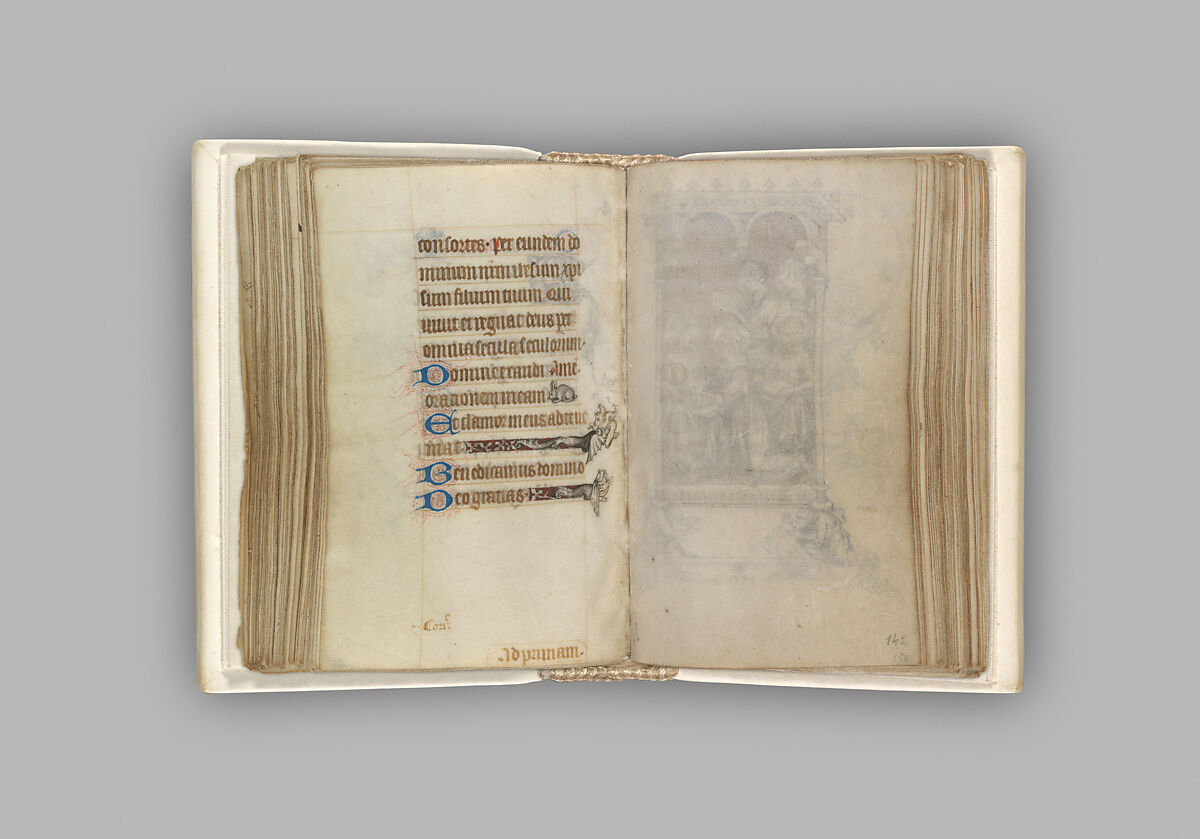 consortes. Per eundem do
minum nr̄m ihesum xpi
stum filium tuum Qui
uiuit et regnat deus per
omnia secula seculorum.
Domine exaudi Ame.
orationem meam
Et clamor meus ad te ue
niat
Benedicamus domino
Deo gratias.
Cor͛.
Ad primam.
142